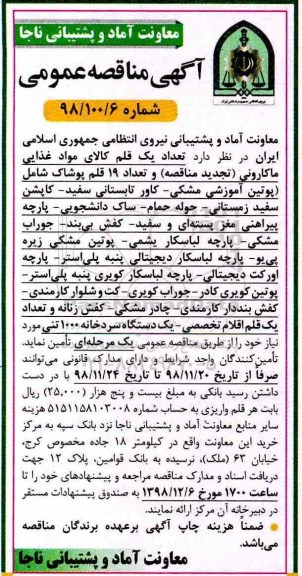 معاونت آماد و پشتیبانی ناجا
آگهی مناقصه عمومی
شماره ۹۸/۱۰۰/۶
معاونت آماد و پشتیبانی نیروی انتظامی جمهوری اسلامی
ایران در نظر دارد تعداد یک قلم کالای مواد غذایی
ماکارونی (تجدید مناقصه) و تعداد ۱۹ قلم پوشاک شامل
(پوتین آموزشی مشکی- کاور تابستانی سفید- کاپشن
سفید زمستانی- حوله حمام- ساک دانشجویی- پارچه
پیراهنی مغز پسته‌ای و سفید- کفش بی‌بند- جوراب
مشکی- پارچه لباسکار یشمی- پوتین مشکی زیره
پی‌یو- پارچه لباسکار دیجیتالی پنبه پلی‌استر- پارچه
اورکت دیجیتالی- پارچه لباسکار کویری پنبه پلی‌استر-
پوتین کویری کادر- جوراب کویری- کت و شلوار کارمندی-
کفش بنددار کارمندی- چادر مشکی- کفش زنانه و تعداد
یک قلم اقلام تخصصی- یک دستگاه سردخانه ۱۰۰۰ تنی مورد
نیاز خود را از طریق مناقصه عمومی یک مرحله‌ای تأمین نماید.
تأمین‌کنندگان واجد شرایط و دارای مدارک قانونی می‌توانند
صرفا از تاریخ ۹۸/۱۱/۲۰ تا تاریخ ۹۸/۱۱/۲۴ با در دست
داشتن رسید بانکی به مبلغ بیست و پنج هزار (۲۵,۰۰۰) ریال
بابت هر قلم واریزی به حساب شماره ۵۱۵۱۱۵۸۱۰۳۰۰۸ هزینه
سایر منابع معاونت آماد و پشتیبانی ناجا نزد بانک سپه به مرکز
خرید این معاونت واقع در کیلومتر ۱۸ جاده مخصوص کرج،
خیابان ۶۳ (ملک)، نرسیده به بانک قوامین، پلاک ۱۲ جهت
دریافت اسناد و مدارک مناقصه مراجعه و پیشنهادهای خود را تا
ساعت ۱۷۰۰ مورخ ۱۳۹۸/۱۲/۶ به صندوق پیشنهادات مستقر
در دبیرخانه آن مرکز ارائه نمایند.
ضمناً هزینه چاپ آگهی برعهده برندگان مناقصه
می‌باشد.
معاونت آماد و پشتیبانی ناجا